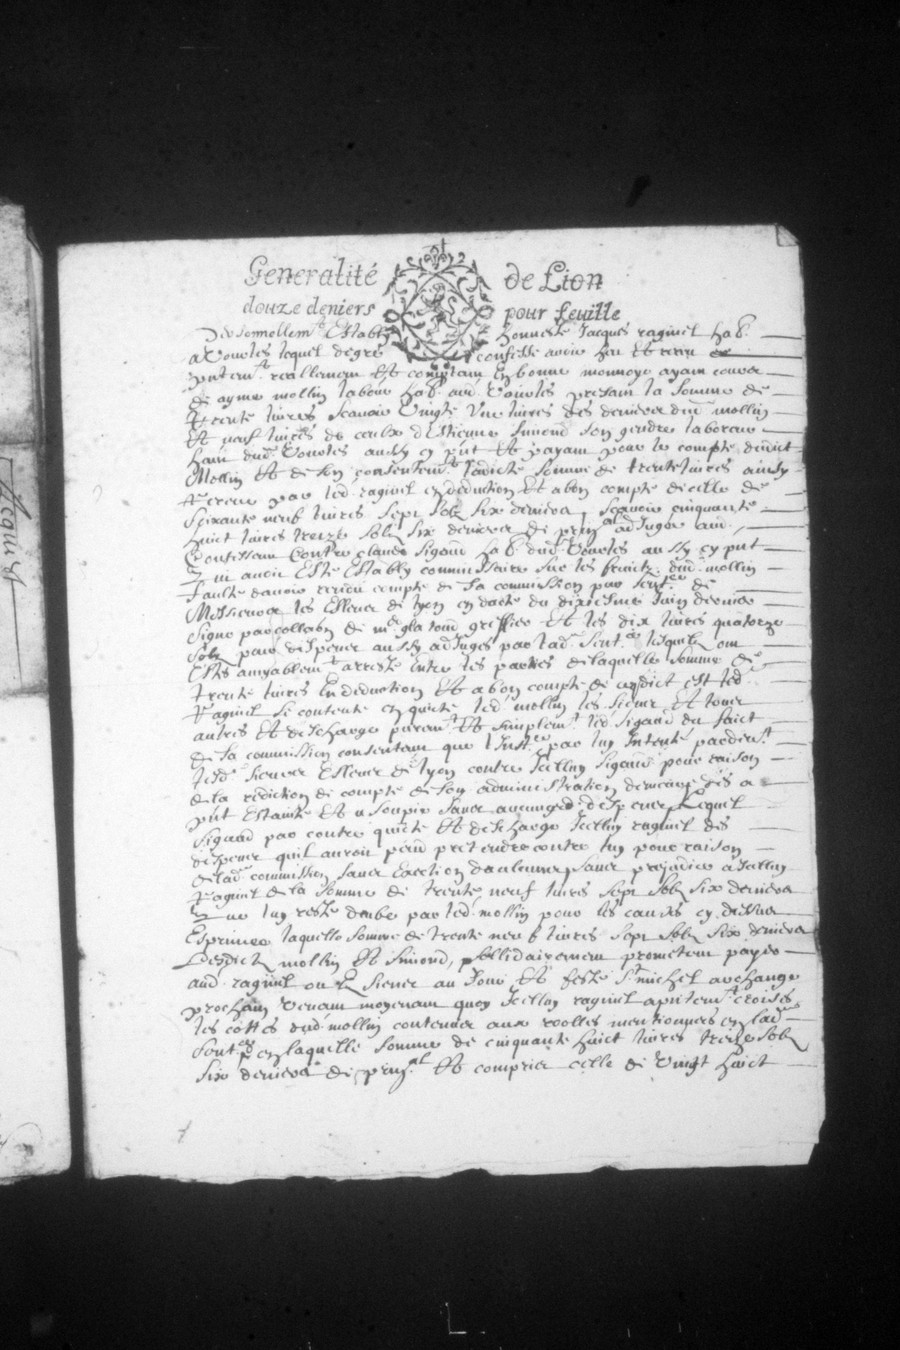 Generalité de Lion
douze deniers pour feuille
personnellem.t Estably honneste Jacques raginel hab.
a Vourles lequel de gre confesse avoir heu et receu
pntem.t reallement et comptant En bonne monnoye ayant cours
de ayme mollin labour hab. aud. Vourles present la somme de
trente livres scavoir Vingt Une livres des deniers dud. mollin
Et neuf livres de ceulx d'Estienne Simond son gendre laboureur
hant dud. Vourles aussy cy pnt et payant pour le compte dudict
Mollin et de son consentem.t ladicte somme de trente livres ainsy
receue par led. raginel en deduction Et a bon compte de celle de
Seixante neuf livres sept solz six deniers, scavoir cinquante
huict livres treize solz six deniers de prin.al adjugee aud.
Confessant Contre claude sigaud hab. dud. Vourles aussy cy pnt
avoir Esté Estably commissaire sur les fruictz dud. mollin
faulte davoir rendu compte de sa commission par sent.ce de
Messieurs les Esleuz de lyon en datte du dixiesme Juin dernier
signé par collaon de greffier Et les dix livres quatorze
solz pour despens aussy adjuges par lad. sent.ce lesquelz ont
Estés amyablem.t arresté Entre les parties de laquelle somme de
trente livres En deduction Et a bon compte de led.
raginel se contente en quicte led. mollin les siens Et tous
autres Et descharge purem.t Et simplem.t led. sigaud du faict
de sa commission consentant que l'inst.ce par luy Intenté pardev.t
lesd. sieurs Esleuz de lyon contre Icelluy sigaud pour raison
de la redition de compte de son administration demeure des a
pnt Estainte Et assoupie sans aucungs despens Lequel
Sigaud par contre quicte Et descharge Icelluy raginel des
despens quil auroit peu pretendre contre luy pour raison
de lad. commission sans Exaction daulcune sans prejudice a Jcelluy
raginel de la somme de trente neuf livres sept solz six deniers
que luy reste deube par led. mollin pour les causes cy dessus
Esprimees laquelle somme de trente neuf livres sept solz six deniers
Lesdictz mollin Et Simond, sollidairement prometent payer
aud. raginel ou Es siens au Jour Et feste St michel archange
prochain Venant moyenant quoy Icelluy raginel apntem.t croisés
les cottes dud. mollin contenues aux roolles mentionnees en lad.
sent.ce en laquelle somme de cinquante huict livres treize solz
six deniers de prin.al Et comprise celle de Vingt huict